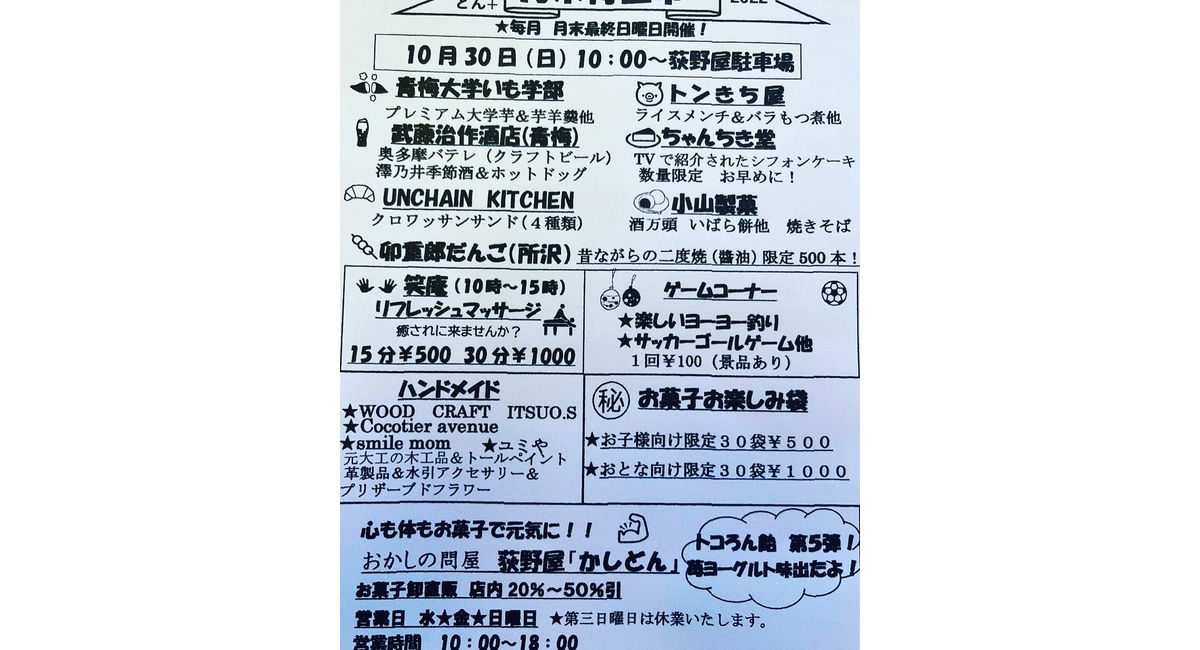 どん+
2022
★毎月 月末最終日曜日開催!
10月30日(日)10:00～荻野屋駐車場
青梅大学いも学部
プレミアム大学芋&芋羊羹他
武藤治作酒店(青梅)
奥多摩バテレ(クラフトビール)
澤乃井季節酒&ホットドッグ
UNCHAIN KITCHEN
クロワッサンサンド(4種類)
トンきち屋
ライスメンチ&バラもつ煮他
ちゃんちき堂
TVで紹介されたシフォンケーキ
数量限定 お早めに!
小山製菓
酒万頭 いばら餅他 焼きそば
卯重郎だんご(所沢)昔ながらの二度焼(醬油)限定500本!
笑庵(10時～15時)
リフレッシュマッサージ
癒されに来ませんか?
15分¥500 30分¥1000
ゲームコーナー
★楽しいヨーヨー釣り
★サッカーゴールゲーム他
1回¥100(景品あり)
ハンドメイド
★WOOD CRAFT ITSUO.S
★Cocotier avenue
★smile mom ★ユミや
元大工の木工品&トールペイント
革製品&水引アクセサリー&
プリザーブドフラワー
秘 お菓子お楽しみ袋
★お子様向け限定30袋¥500
★おとな向け限定30袋¥1000
心も体もお菓子で元気に!!
おかしの問屋 荻野屋「かしどん」
お菓子卸直販 店内20%～50%引
営業日 水★金★日曜日 ★第三日曜日は休業いたします。
営業時間 10:00～18:00
トコろん飴 第5弾!
苺ヨーグルト味出だよ!